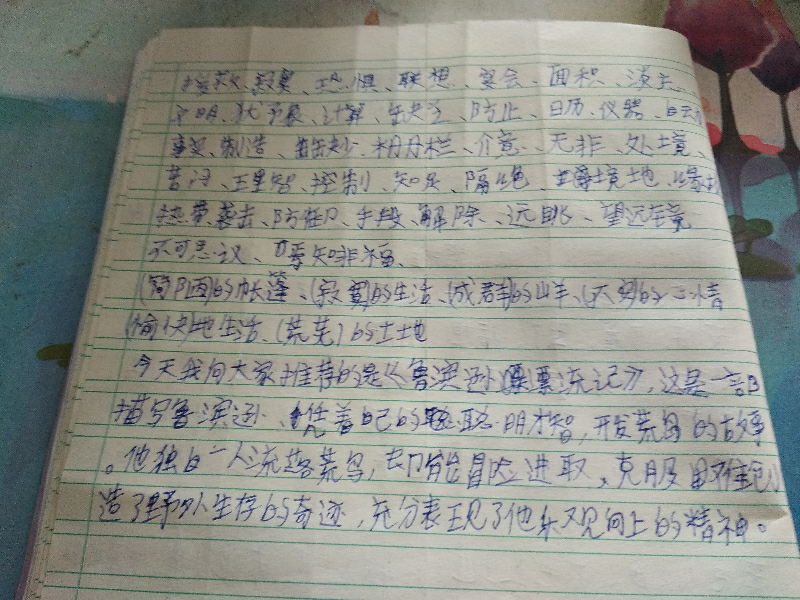 寂寞、恐惧、联想、宴会、面积、
明、状况、计算、缺乏、防止、日历、仪器、
事、制造、缺少、栅栏、介意、无非、处境、
理智、控制、知足、隔绝、墙、土地、
热带、袭击、防御、手段、解除、远眺、望远镜
不可思议、焉知非福、
(简陋)的帐篷、(寂寞)的生活、(成群)的山羊、的心情
(愉快)地生活、(荒芜)的土地
今天我向大家推荐的是《鲁滨逊漂流记》,这是一部
描写鲁滨逊、凭着自己的聪明才智,开发荒岛的故事
。他独自一人流落荒岛,敢于冒险进取,克服困难创
造了野外生存的奇迹,充分表现了他乐观向上的精神。